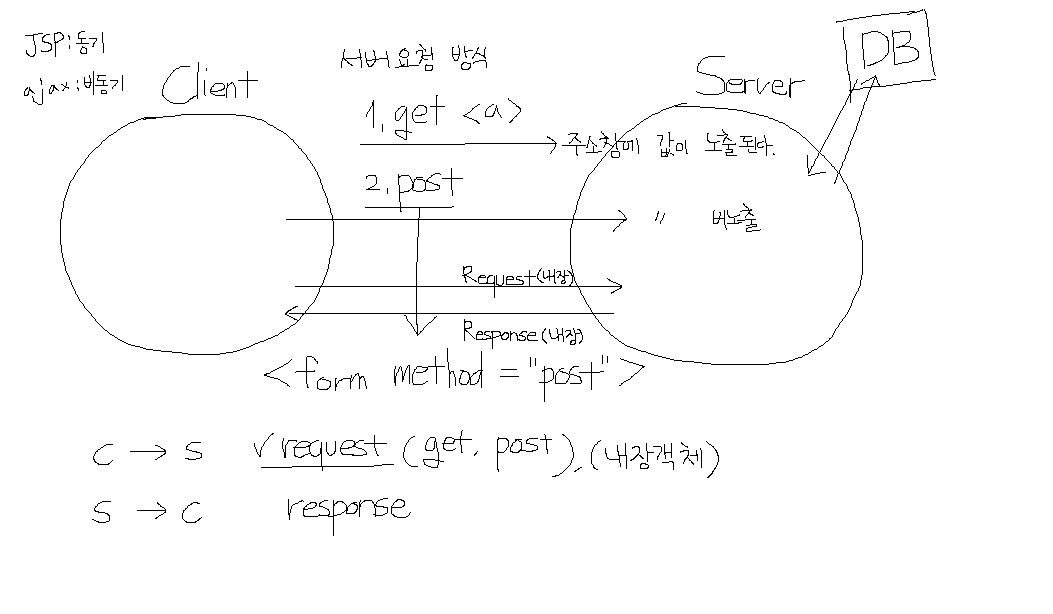 JSP : 동기
ajax : 비동기
Client
서버 요청 방식
Server
DB
1. get <a>
주소창에 값이 노출된다.
2. post
〃 비노출
Request (내장)
Response (내장)
<form method = "post">
C → S √ request (get, post). (내장객체)
S → C response